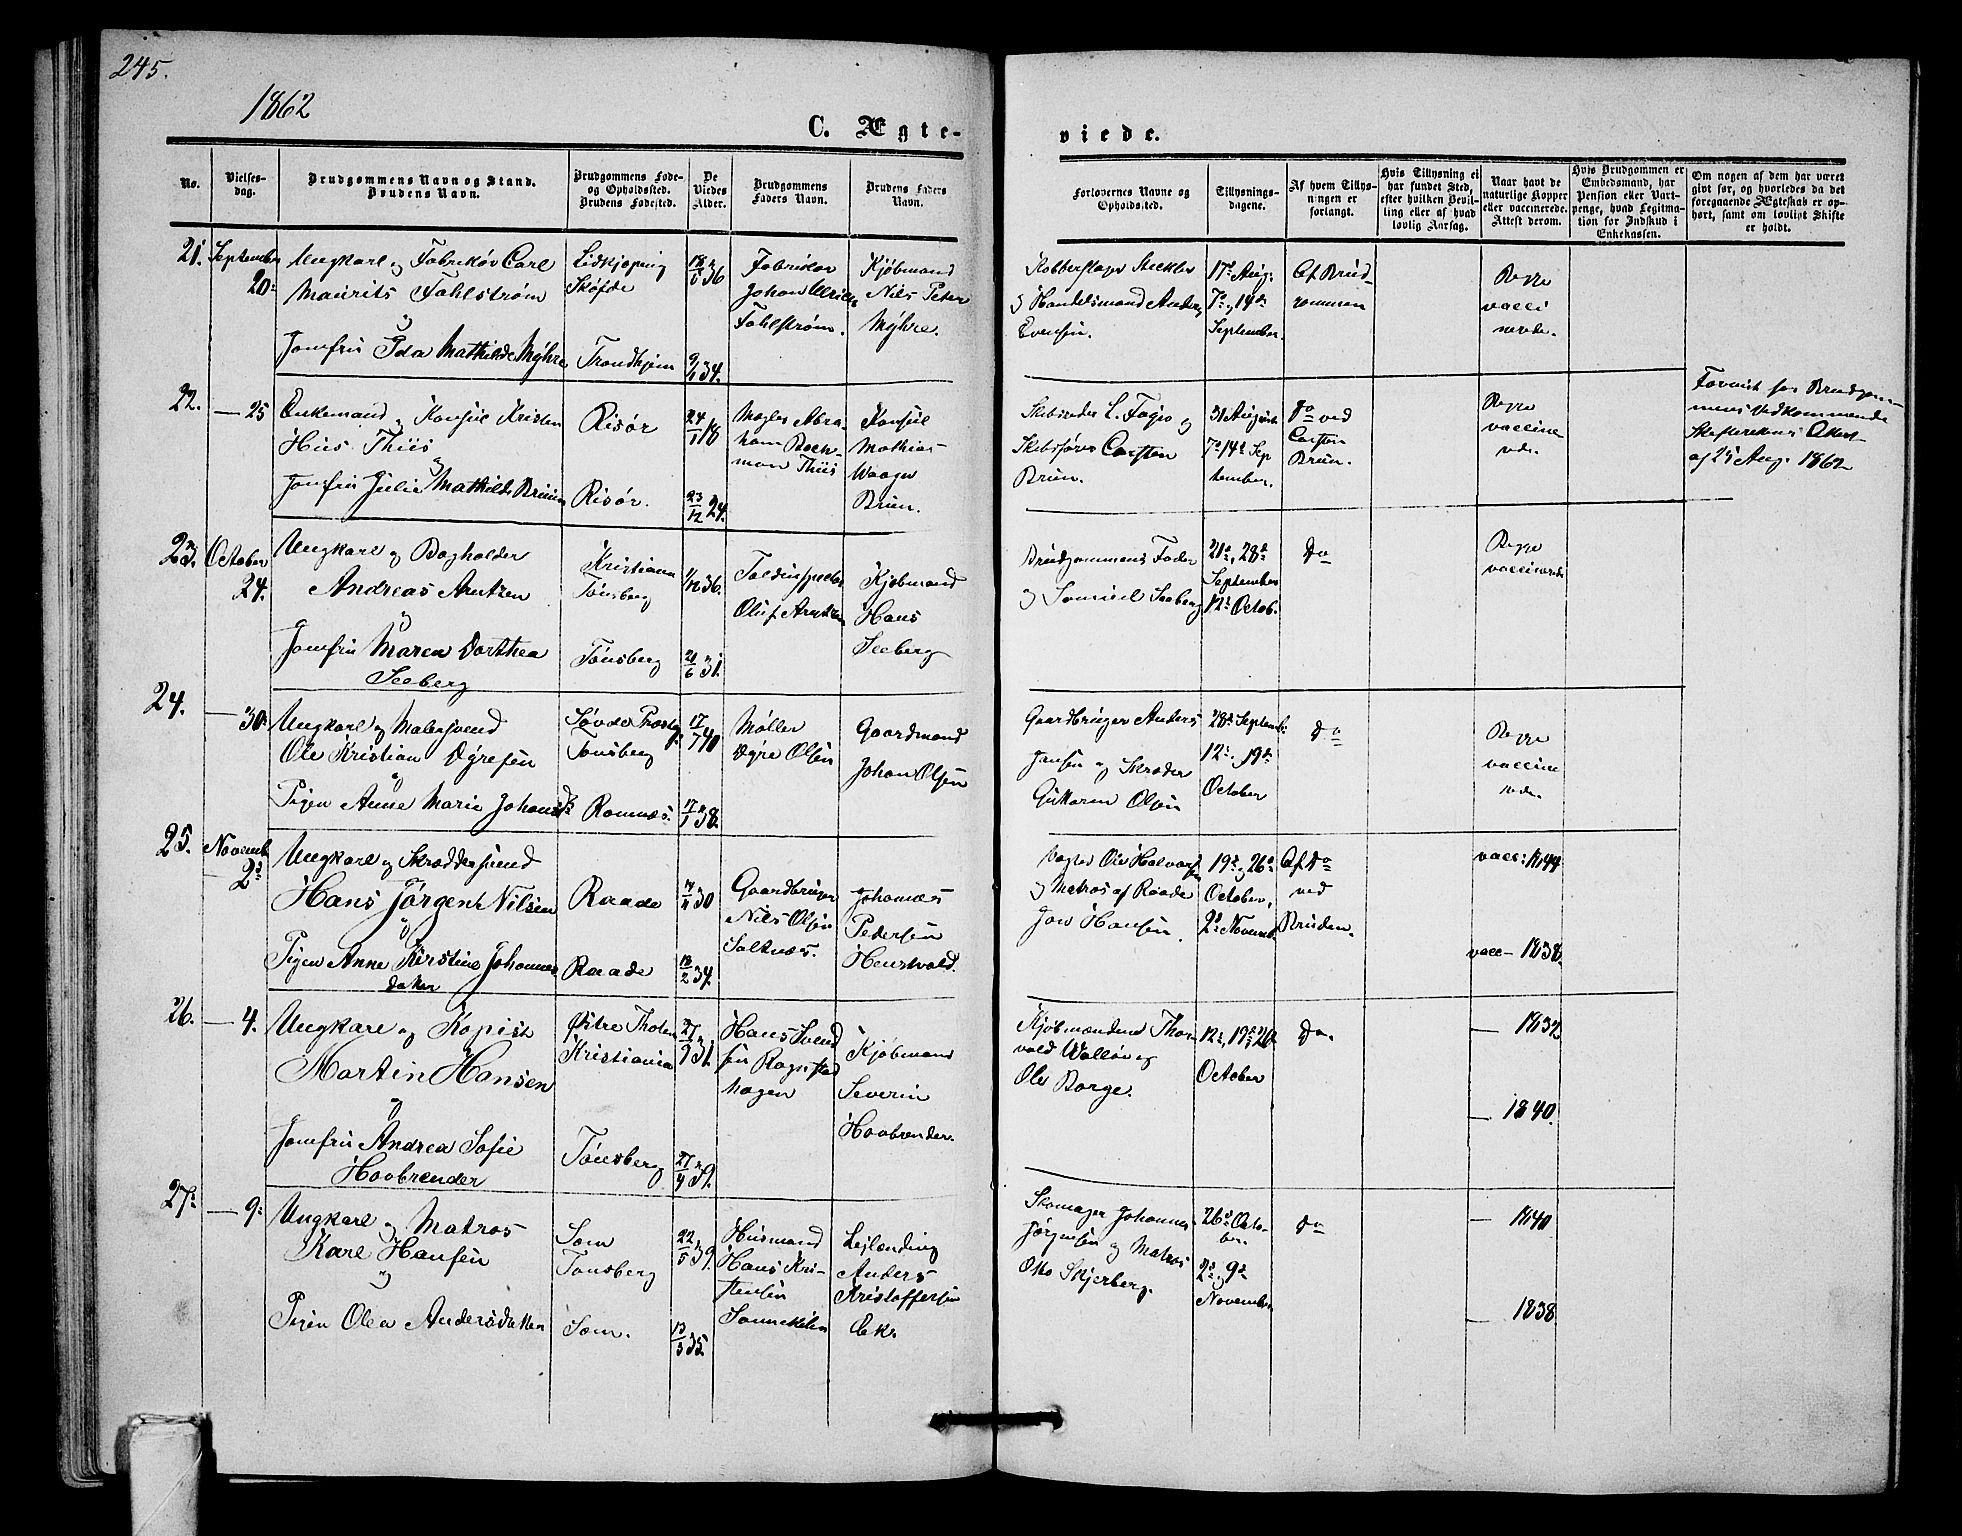 245.
1862
C. Ægte-
viede.
No.
Vielses-
dag.
Brudgommens Navn og Stand.
Brudens Navn.
Brudgommens Føde-
og Opholdssted.
Brudens Fødested.
De
Viedes
Alder.
Brudgommens
Faders Navn.
Brudens Faders
Navn.
Forlovernes Navne og
Opholdssted.
Tillysnings-
dagene.
Af hvem Tillys-
ningen er
forlangt.
Hvis Tillysning ei
har fundet Sted,
efter hvilken Bevil-
ling eller af hvad
lovlig Aarsag.
Naar havt de
naturlige Kopper
eller vaccinerede.
Attest derom.
Hvis Brudgommen er
Embedsmand, har
Pension eller Vart-
penge, hvad Legitima-
tion for Indskud i
Enkekassen.
Om nogen af dem har været
gift før, og hvorledes da det
foregaaende Ægteskab er op-
hørt, samt om lovligt Skifte
er holdt.
21.
September
20.
Ungkarl og Fabrikør Carl
Maurits Fahlstrøm
og
Jomfru Ida Mathilde Myhre
Lidkjøping
Skøfde
Trondhjem
18/5 36
9/1 34.
Fabrikør
Johan Ulrich
Fahlstrøm.
Kjøbmand
Nils Peter
Myhre.
Kobberslager
og Handelsmand Anders
Evensen.
17de Aug.
7de, 14de
September.
Af Brud-
gommen
Begge
vacci
nerede.
22.
— 25
Enkemand og Konsul Kristen
Hüs Thiis
og
Jomfru Julie Mathilde Brüün
Risør
Risør.
24/1 18
23/12 24.
Mægler Abra-
ham Bock-
man Thiis
Konsul
Mathias
Waage
Brün.
Skibsreder L. Fogio og
Skibsfører Carsten
Brün.
31 August
7de 14de Sep
tember.
Do ved
Carsten
Brün.
Begge
vaccine
rede.
Forevist for Brudgom-
mens Vedkommende
Skifterettens Attest
af 25 Aug. 1862
23.
October
24.
Ungkarl og Bogholder
Andreas Arntzen
og
Jomfru Maren Dorthea
Seeberg
Kristiania
Tönsberg
Tönsberg
1/12 36.
21/6 31.
Toldinspecteur
Oluf Arntzen
Kjøbmand
Hans
Seeberg
Brudgommens Fader
og Samuel Seeberg
21de, 28de
September
12te Octob.
Do
Begge
vaccinerede
24.
— 30.
Ungkarl og Malersvend
Ole Kristian Dyresen
og
Pigen Anne Marie Johansd.
Tönsberg
Ramnæs.
17/7 40
17/1 38.
Møller
Dyre Olsen
Gaardmand
Johan Olsen
Gaardbruger Anders
Jansen og Skræder
Guttorm Olsen
28de Septemb.
12te, 19de
October
Do
Begge
vaccine
rede.
25.
Novemb.
— 2d
Ungkarl og Skræddersvend
Hans Jørgen Nilsen
og
Pigen Anne Kirstine Johannes
datter
Raade
Raade
4/11 30
18/2 34.
Gaardbruger
Nils Olsen
Saltnæs.
Johannes
Pedersen
Hestvold.
Vagter Ole Halvorsen
og Matros af Raade
Jon Hansen.
19de og 26de
October,
2de Novemb.
Af Do
ved
Bruden.
vacc: 1844
vacc— 1838.
26.
— 4.
Ungkarl og Kopist
Martin Hansen
og
Jomfru Andrea Sofie
Hovbrender
Østre Thoten
Kristiania
Tönsberg
27/9 31.
27/4 39.
Hans Svend
sen Rognstad
hagen
Kjøbmand
Severin
Hovbrender.
Kjøbmændene Thor
vald Walløe og
Ole Borge.
12te, 19de, 26
October
Do.
— 1832
— 1840.
27.
— 9.
Ungkarl og Matros
Karl Hansen
og
Pigen Olea Andersdatter
Sem
Tönsberg
Sem.
22/5 39.
13/3 35.
Husmand
Hans Kri-
stensen
Leilænding
Anders
Kristoffersen
Eke
Skomager Johannes
Jørgensen og Matros
Otto Skjerberg.
26de Octo-
ber.
2de og 9de
November
Do
— 1840
— 1838